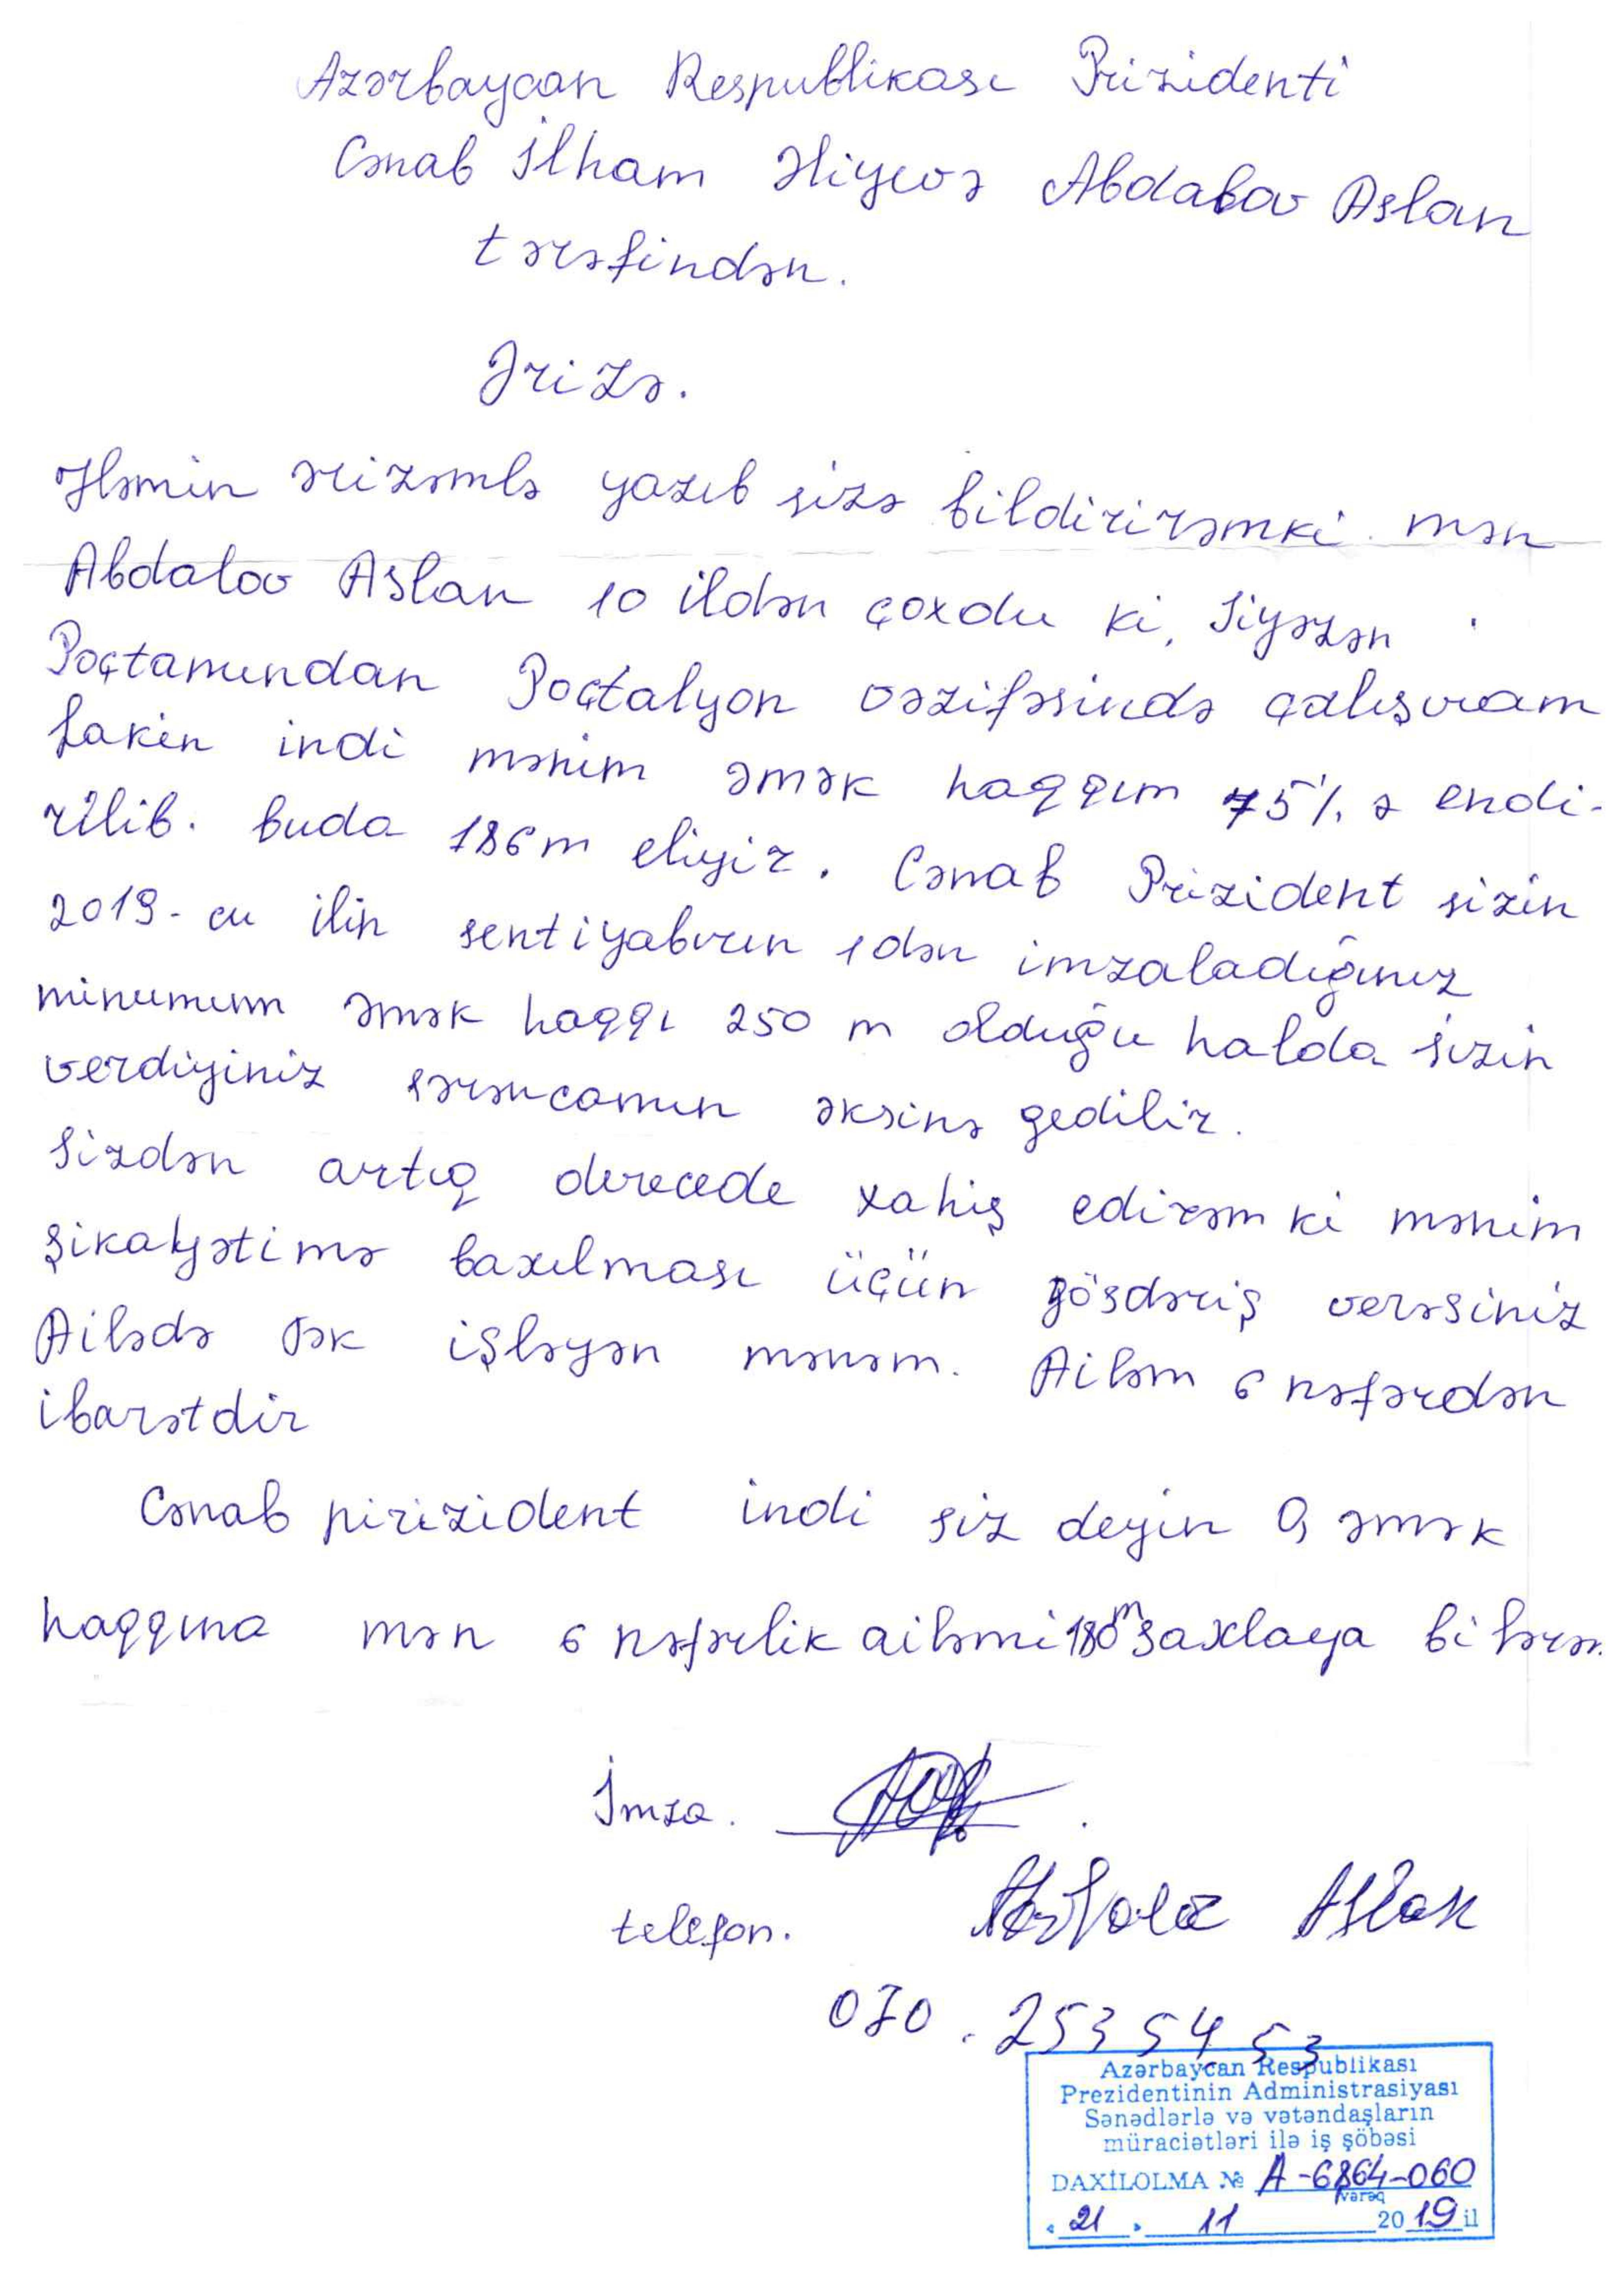 Azərbaycan Respublikası Prizidenti
Cənab İlham Əliyevə Abdalov Aslan
tərəfindən.
Ərizə.
Həmin ərizəmlə yazıb sizə bildirirəmki mən
Abdalov Aslan 10 ildən çoxdu ki, Siyəzən
Poçtamından Poçtalyon vəzifəsində çalışıram
Lakin indi mənim əmək haqqım 75% ə endi-
rilib. buda 186m eliyir. Cənab Prizident sizin
2019-cu ilin sentiyabrın 1dən imzaladığınız
minumum əmək haqqı 250 m olduğu halda sizin
verdiyiniz sərəncamın əksinə gedilir.
Sizdən artıq derecede xahiş edirəm ki mənim
şikayətimə baxılması üçün gösdəriş verəsiniz
Ailədə tək işləyən mənəm. Ailəm 6 nəfərdən
ibarətdir
Cənab pirizident indi siz deyin O əmək
haqqına mən 6 nəfərlik ailəmi 180m saxlaya bilərəm
İmza.
telefon. Aslan
070. 2535453
Azərbaycan Respublikası
Prezidentinin Administrasiyası
Sənədlərlə və vətəndaşların
müraciətləri ilə iş şöbəsi
DAXİLOLMA № A-6864-060
vərəq
« 21 » 11 2019 il